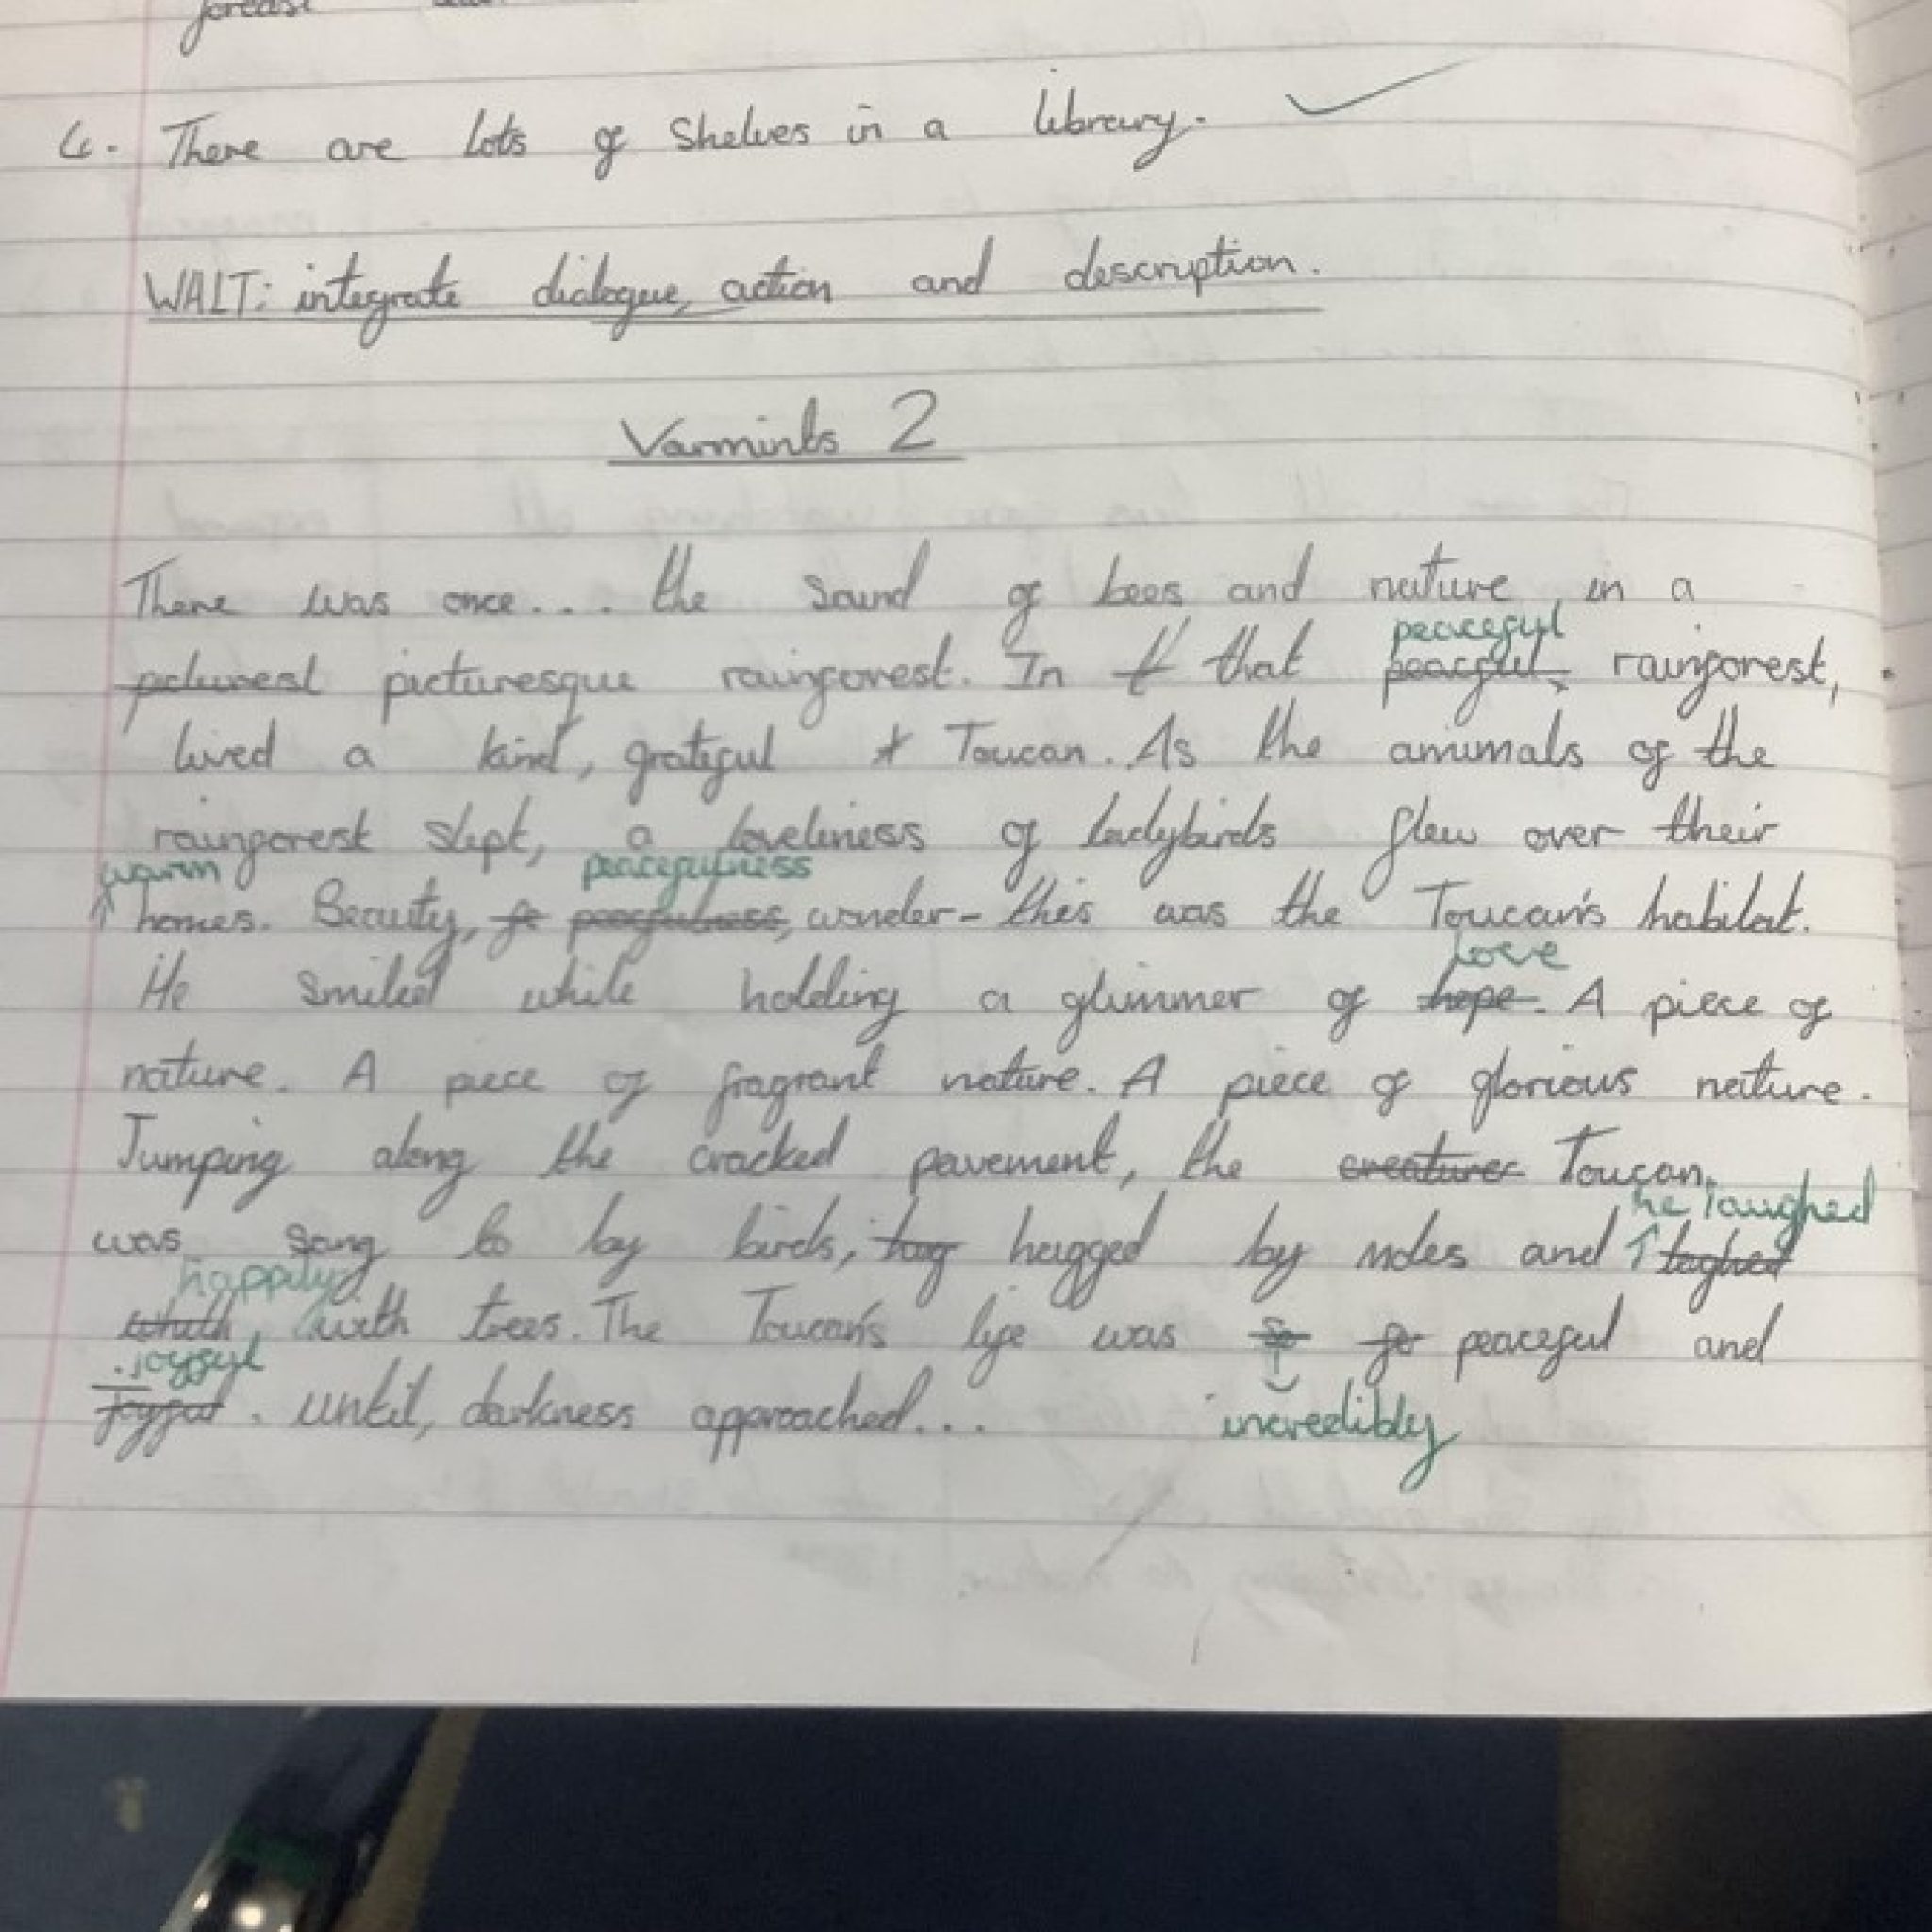 forecast
4. There are lots of Shelves in a library.
WALT: integrate dialogue, action and description.
Varmints 2
There was once.... the sound of bees and nature, in a
peaceful
picturest picturesque rainforest. In t that peacful rainforest,
lived a kind, grateful t Toucan. As the animals of the
rainforest slept, a loveliness of ladybirds flew over their
warm peacefulness
homes. Beauty, peacfulness, wonder- this was the Toucan's habitat.
love
He smiled while holding a glimmer of hope. A piece of
nature. A piece of fragrant nature. A piece of glorious nature.
Jumping along the cracked pavement, the creature Toucan,
he laughed
was sang to by birds, hug hugged by moles and laghed
happily
whith with trees. The Toucan's life was so peaceful and
joyful
Joyful. until, darkness approached...
incredibly